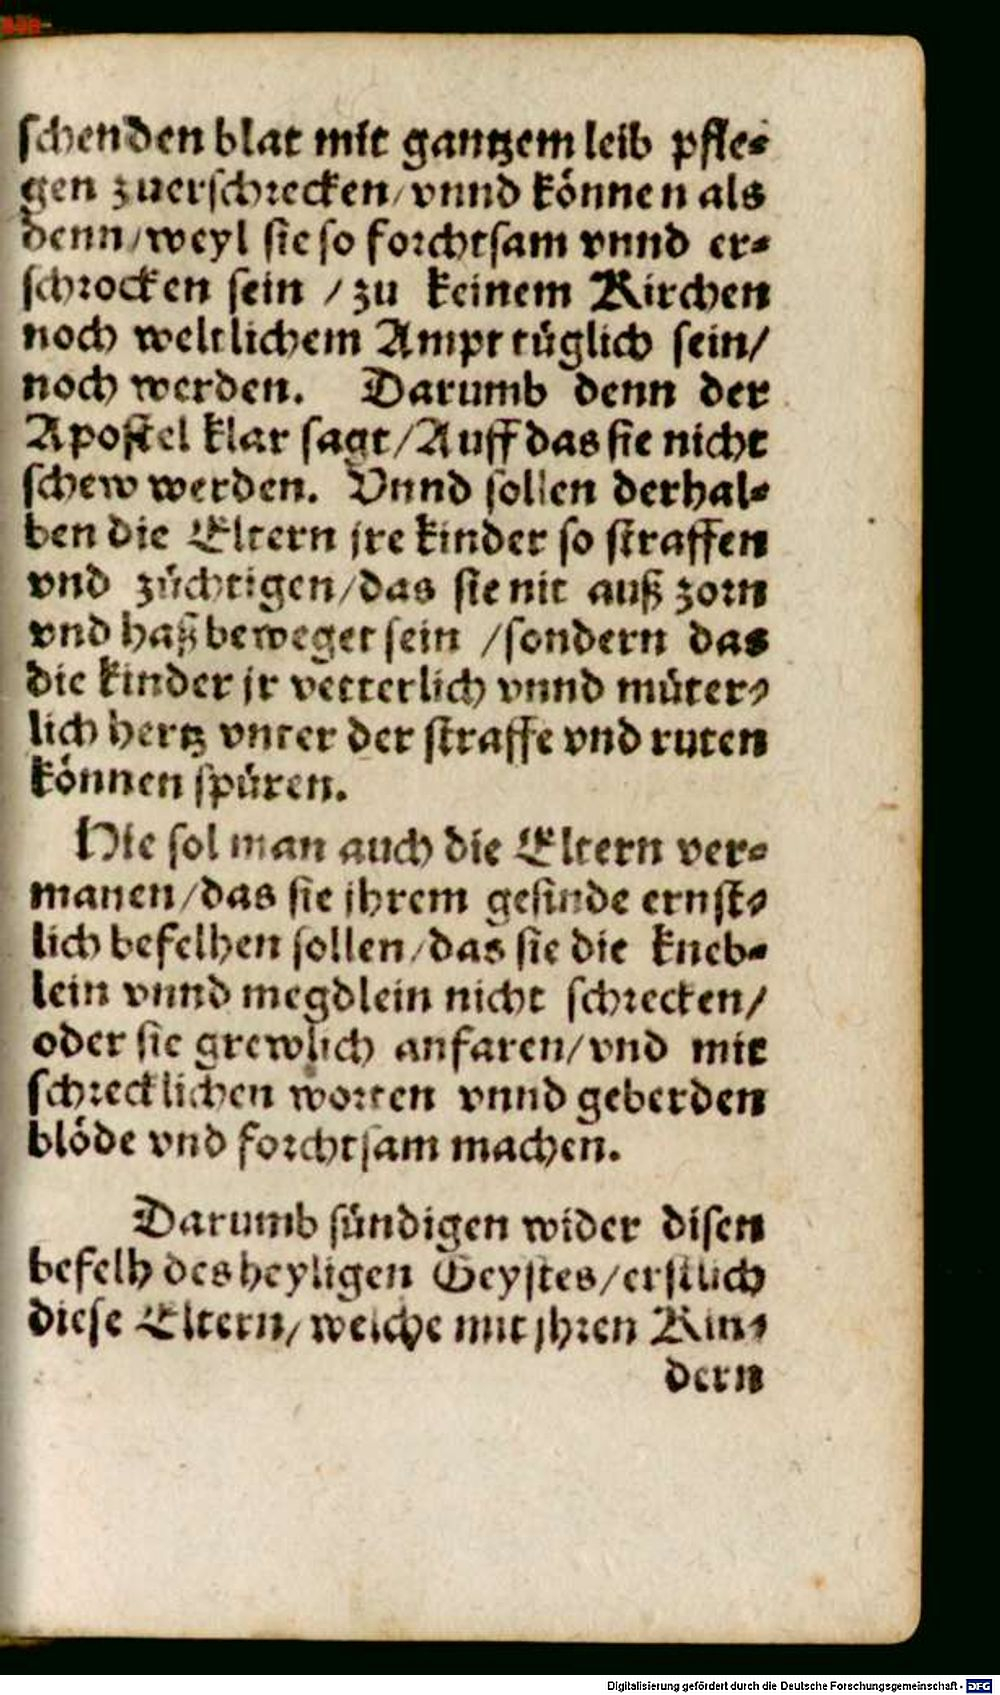 schenden blat mit gantzem leib pfle-
gen zuerschrecken/vnnd können als
denn/weyl sie so forchtsam vnnd er-
schrocken sein / zu keinem Kirchen
noch weltlichem Ampt tüglich sein/
noch werden. Darumb denn der
Apostel klar sagt/Auff das sie nicht
schew werden. Vnnd sollen derhal-
ben die Eltern jre kinder so straffen
vnd züchtigen/das sie nit auß zorn
vnd haß beweget sein /sondern das
die kinder jr vetterlich vnnd müter-
lich hertz vnter der straffe vnd ruten
können spüren.
Hie sol man auch die Eltern ver-
manen/das sie jhrem gesinde ernst-
lich befelhen sollen/das sie die kneb-
lein vnnd megdlein nicht schrecken/
oder sie grewlich anfaren/vnd mit
schrecklichen worten vnnd geberden
blöde vnd forchtsam machen.
Darumb sündigen wider disen
befelh des heyligen Geystes/erstlich
diese Eltern/welche mit jhren Kin-
dern
Digitalisierung gefördert durch die Deutsche Forschungsgemeinschaft - DFG